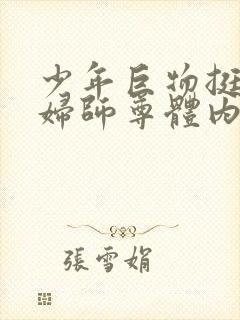 少年巨物挺
婦師尊體內
張雪娟